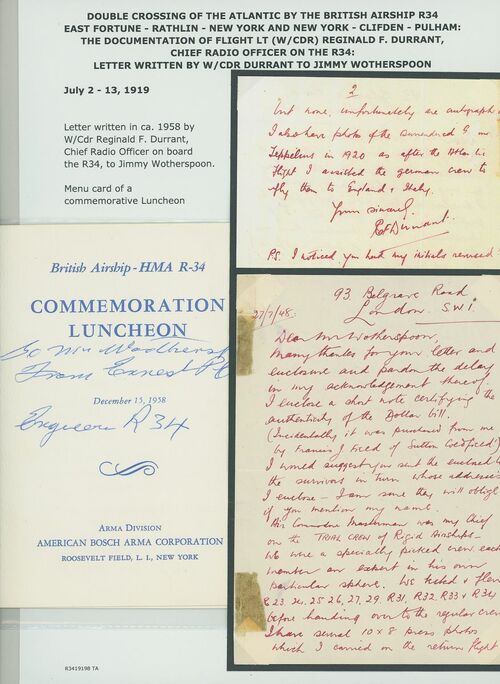 DOUBLE CROSSING OF THE ATLANTIC BY THE BRITISH AIRSHIP R34
EAST FORTUNE - RATHLIN - NEW YORK AND NEW YORK - CLIFDEN - PULHAM:
THE DOCUMENTATION OF FLIGHT LT (W/CDR) REGINALD F. DURRANT,
CHIEF RADIO OFFICER ON THE R34:
LETTER WRITTEN BY W/CDR DURRANT TO JIMMY WOTHERSPOON
July 2 - 13, 1919
Letter written in ca. 1958 by
W/Cdr Reginald F. Durrant,
Chief Radio Officer on board
the R34, to Jimmy Wotherspoon.
Menu card of a
commemorative Luncheon
2
but none, unfortunately are autograph
I also have photos of the surrendered G
Zeppelins in 1920 as after the Atlantic
flight I assisted the german crew to
fly them to England & Italy.
Yours sincerely,
Durrant.
PS. I noticed you had my initials reversed
British Airship - HMA R-34
COMMEMORATION
LUNCHEON
From Ernest
December 15, 1958
Engineer R34
ARMA DIVISION
AMERICAN BOSCH ARMA CORPORATION
ROOSEVELT FIELD, L. I., NEW YORK
93 Belgrave Road
London. S.W.1.
27/7/48:
Dear Mr Wotherspoon,
Many thanks for your letter and
enclosure and pardon the delay
in my acknowledgement thereof.
I enclose a short note certifying the
authenticity of the Dollar bill.
(Incidentally it was purchased from me
by Francis J Field of Sutton Coldfield)
I would suggest you sent the enclosed
the survivors in turn whose addresses
I enclose - I am sure they will oblige
if you mention my name.
Air Commodore Masterman was my Chief
on the TRIAL CREW of Rigid Airships-
We were a specially picked crew each
member an expert in his own
particular sphere. We tested & flew
R23 24. 25 26, 27, 29. R31, R32 R33 & R34
before handing over to the regular crew
I have several 10 x 8 press photos
which I carried on the return flight
R3419198 TA